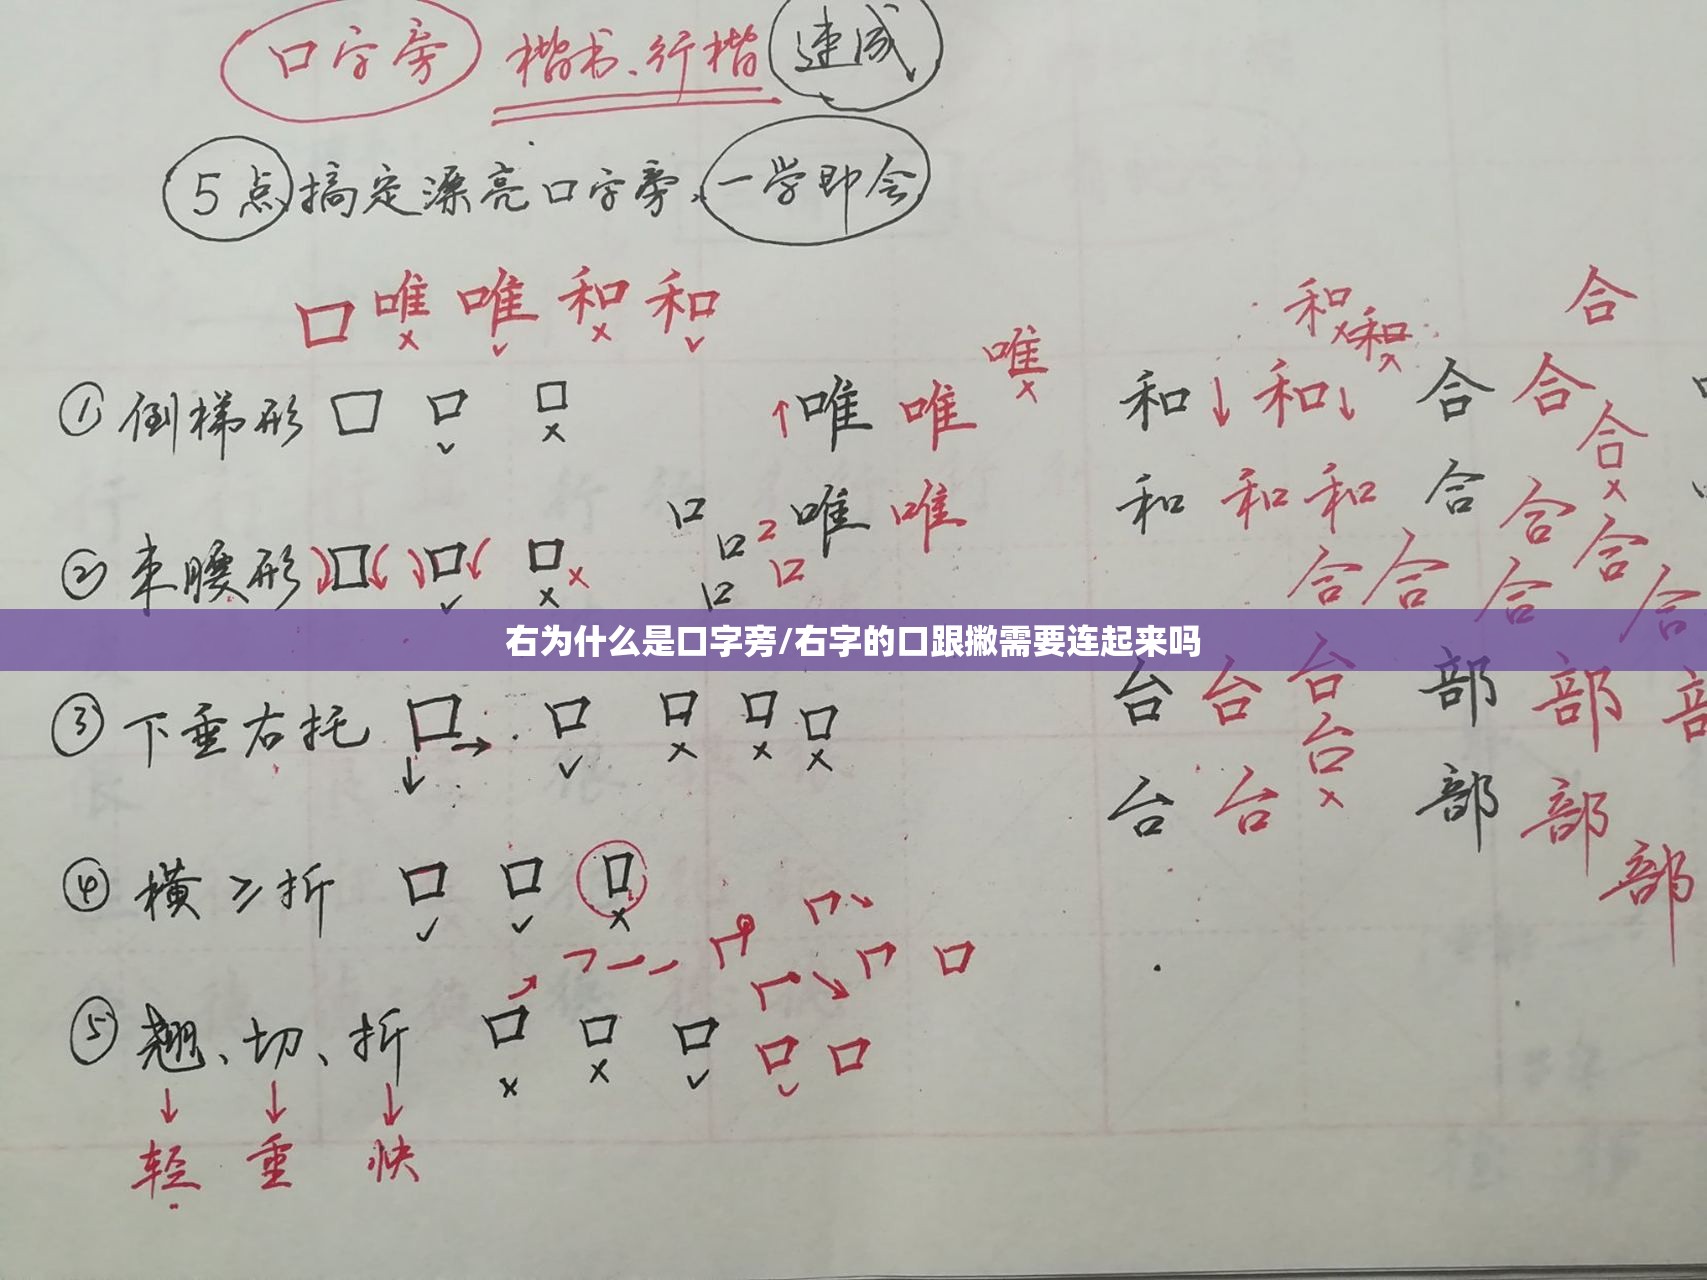 口字旁 楷书、行楷 速成
5点搞定漂亮口字旁、一学即会
口 唯 唯 和 和
和 和 合
① 倒梯形 口 口 口 唯 唯 唯 和 和 合 合 合
口 口 口 2 口 唯 唯 和 和 和 合 合 合
② 束腰形 口 口 口 合 合 合 合
右为什么是口字旁/右字的口跟撇需要连起来吗
③ 下垂右托 口 口 口 口 口 台 台 台 台 部 部 部
台 台 部 部 部
④ 横≥折 口 口 口
口
⑤ 翘、切、折 口 口 口 口 口
轻 重 快